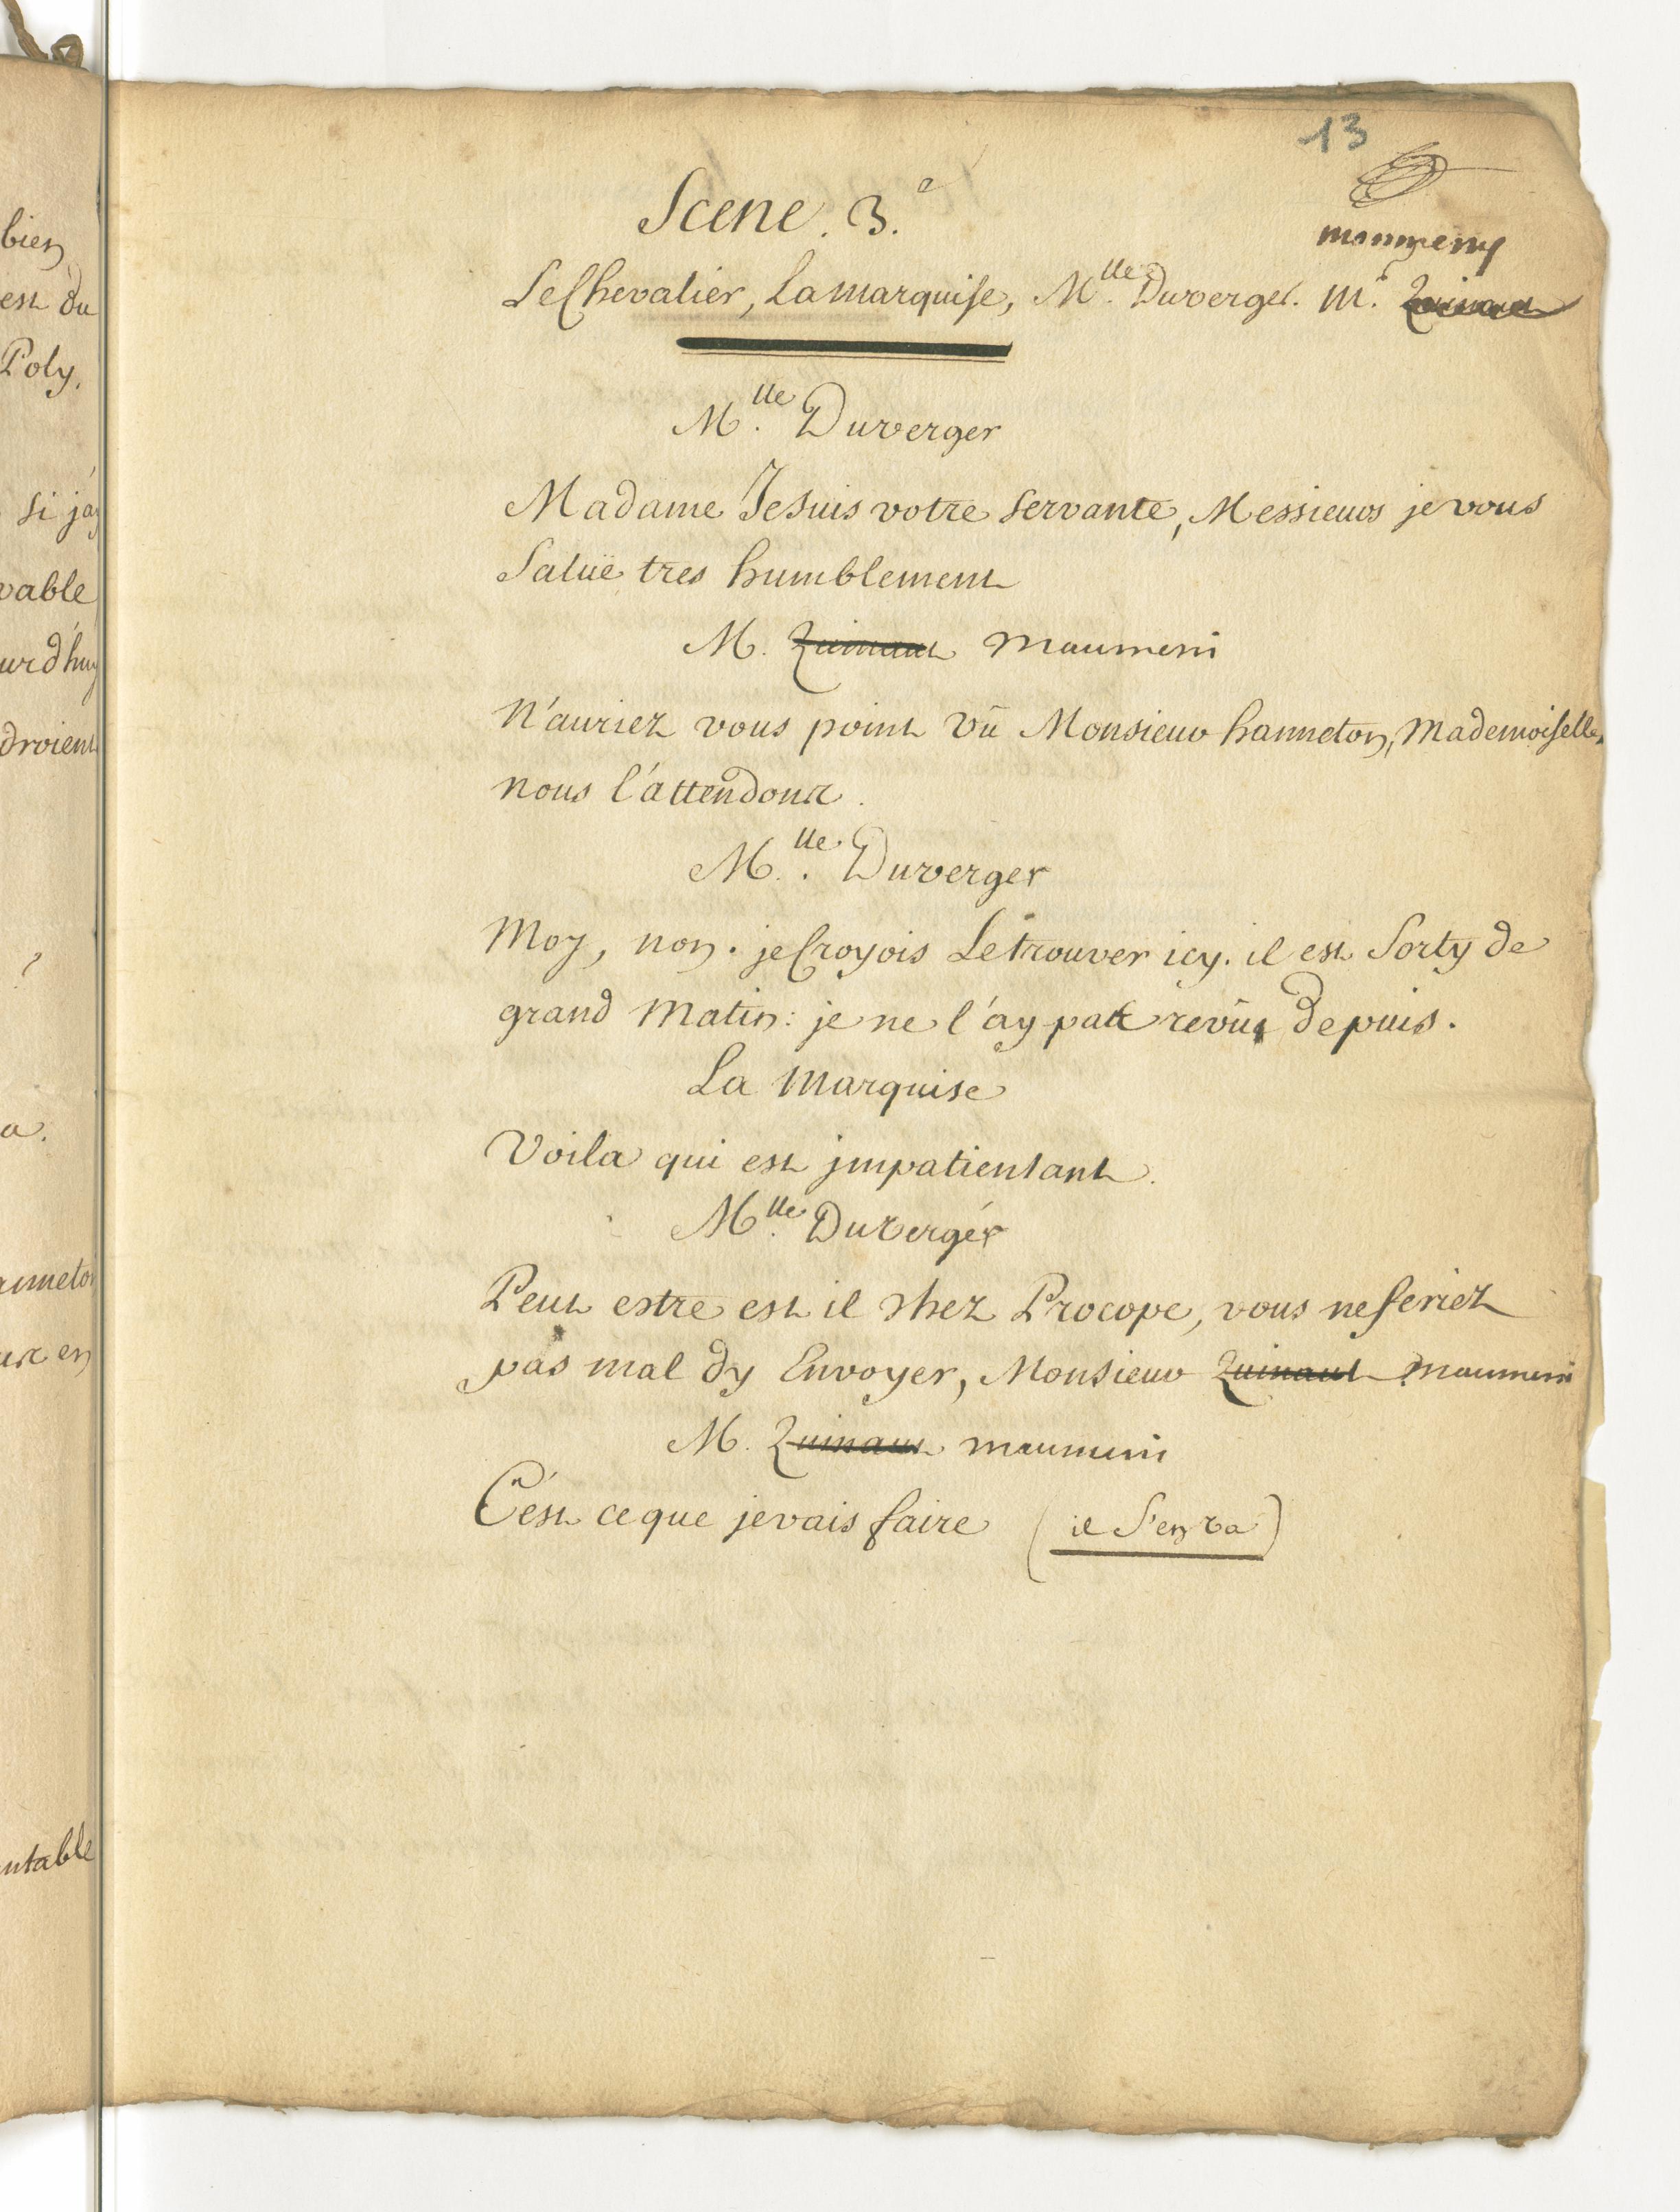 bien
est du
Poly.
si j'ay
vable
urd'huy
droient
?
a.
anneton
en
ntable
13
Scene. 3.e
maumeny
Le Chevalier, La marquise, M.lle Duverger. Mr. Quinaut
M.lle Duverger
Madame Je suis votre servante, Messieurs je vous
Saluë tres humblement
M. Quinaut maumeni
N'auriez vous point vû Monsieur hanneton, Mademoiselle,
nous l'attendons.
M.lle Duverger
Moy, non. je Croyois Le trouver icy. il est Sorty de
grand Matin: je ne l'ay pas revû depuis.
La Marquise
Voila qui est jmpatientant.
M.lle Duverger
Peut estre est il chez Procope, vous ne feriez
pas mal dy Envoyer, Monsieur Quinaut maumeni
M. Quinaut maumeni
C'est ce que je vais faire (il s'en va)